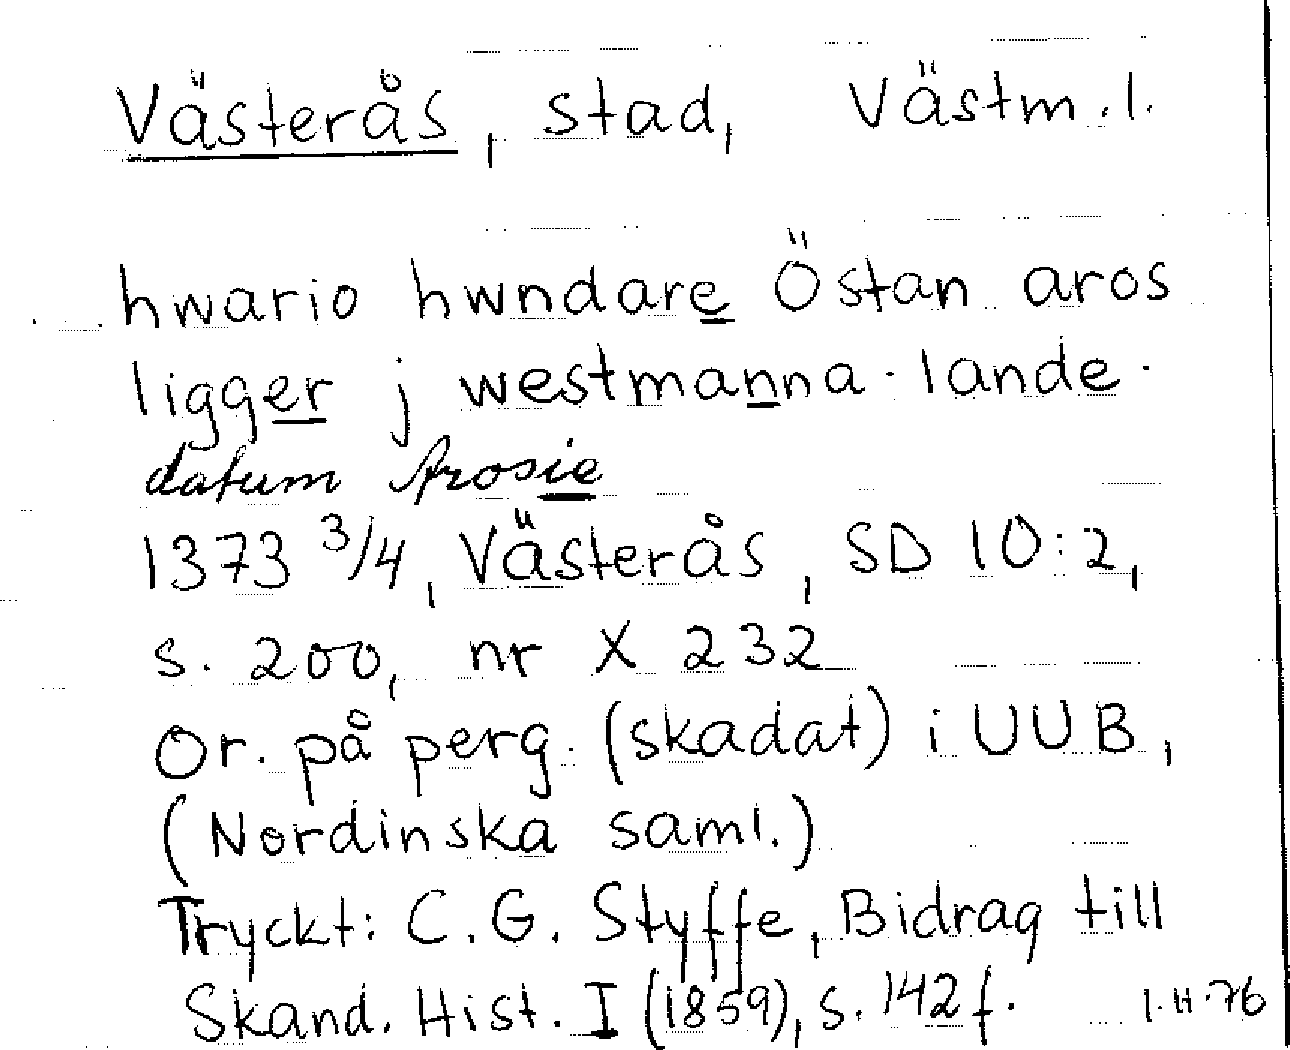 Västerås, stad, Västm.l.
hwario hwndare Östan aros
ligger j westmanna lande.
datum Arosie
1373 3/4, Västerås, SD 10:2,
s. 200, nr X 232
Or. på perg. (skadat) i UUB,
(Nordinska saml.)
Tryckt: C.G. Styffe, Bidrag till
Skand. Hist. I (1859), s. 142 f.